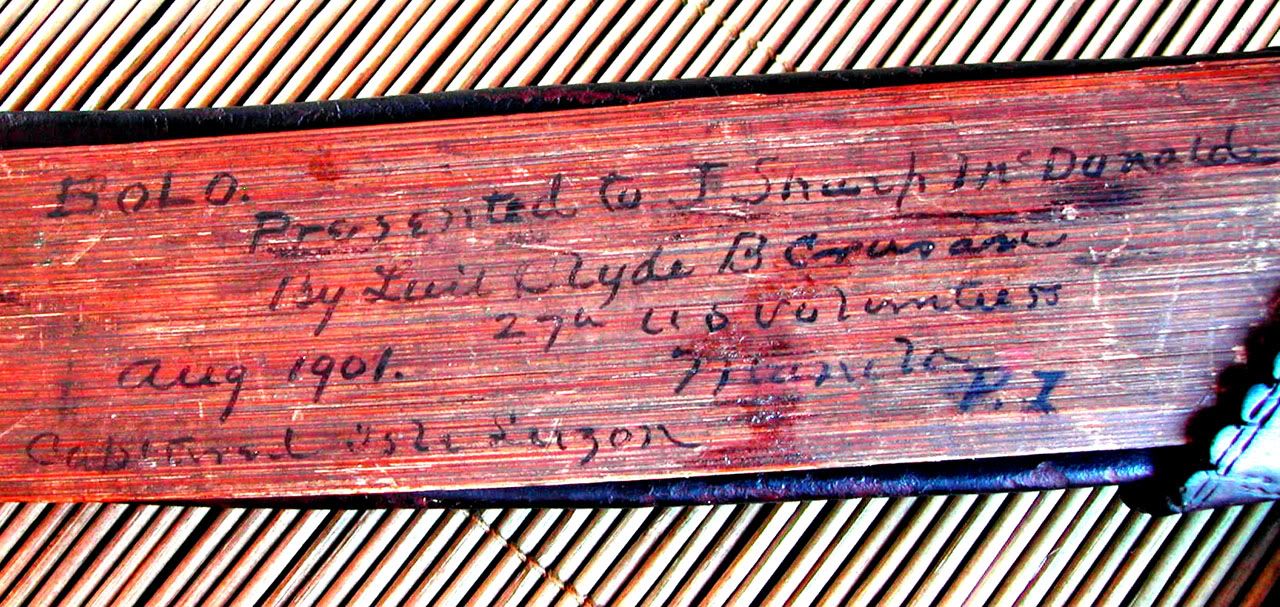 BOLO.
Presented to J Sharp McDonald
By Luit Clyde B Crusan
27th US Volunteers
Aug 1901. Manila
P.I
Captured Isle Luzon